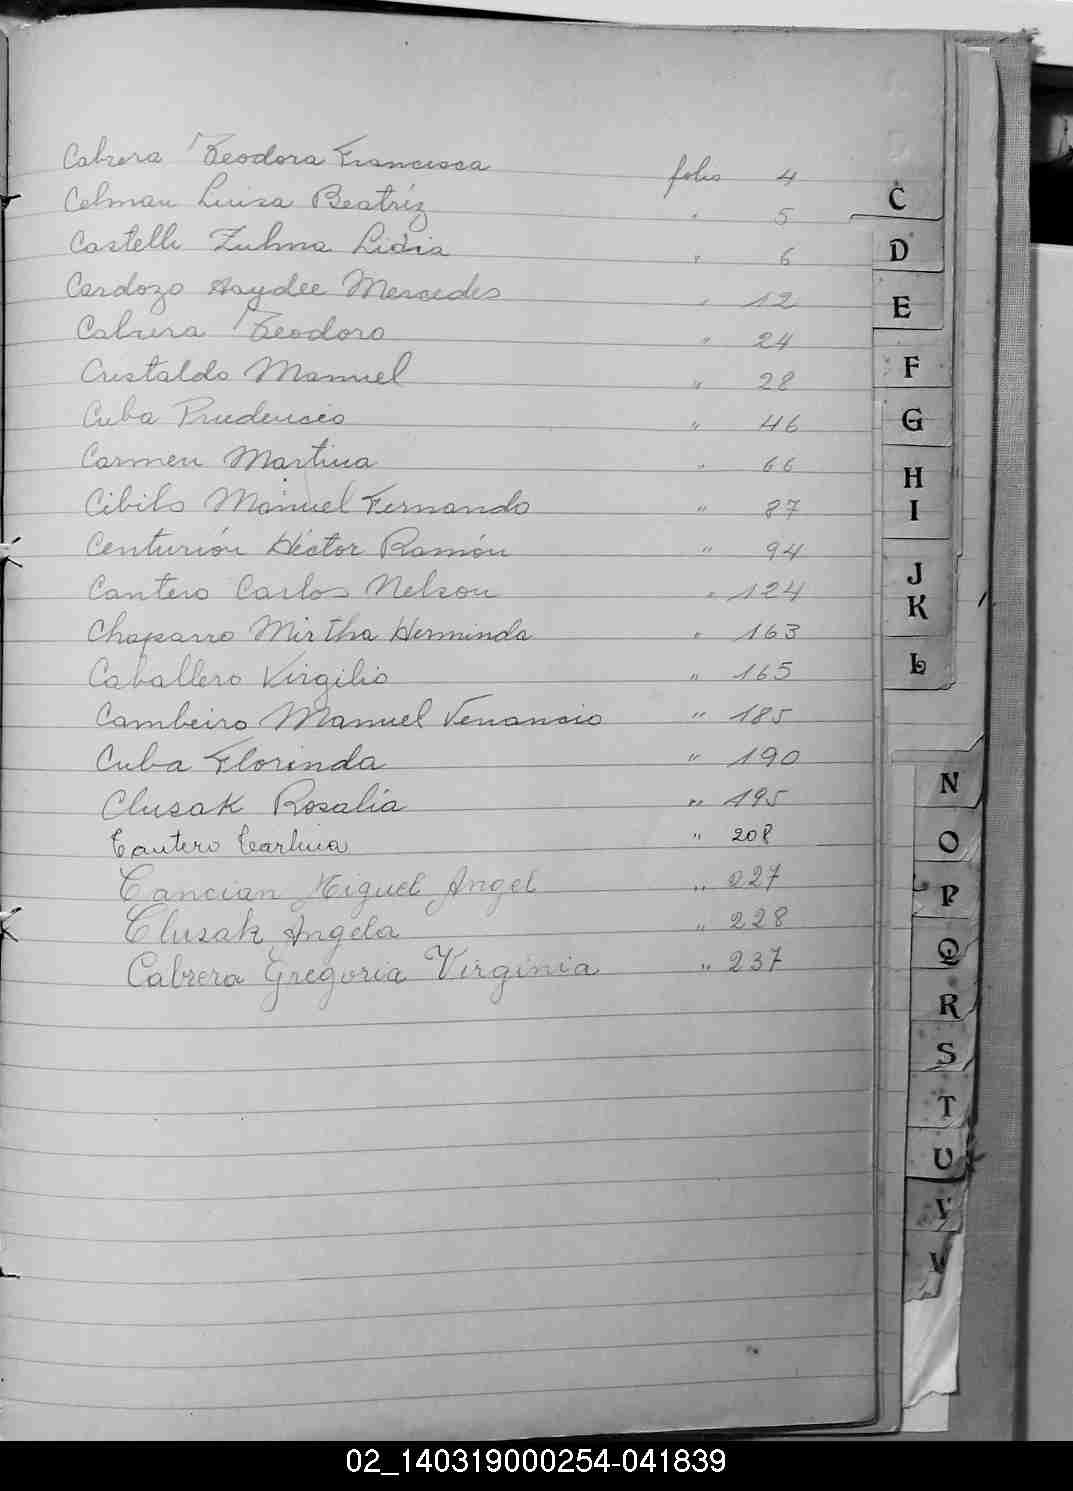 Cabrera Teodora Francisca folio 4
Celman Luisa Beatríz " 5
Castelli Zulma Lidia " 6
Cardozo Haydee Mercedes " 12
Cabrera Teodoro " 24
Cristaldo Manuel " 28
Cuba Prudencio " 46
Carmen Martina " 66
Cibils Manuel Fernando " 87
Centurión Héctor Ramón " 94
Cantero Carlos Nelson " 124
Chaparro Mirtha Herminda " 163
Caballero Virgilio " 165
Cambeiro Manuel Venancio " 185
Cuba Florinda " 190
Clusak Rosalía " 195
Cantero Carlina " 208
Cancian Miguel Angel " 227
Clusak Angela " 228
Cabrera Gregoria Virginia " 237
C
D
E
F
G
H
I
J
K
L
N
O
P
Q
R
S
T
U
V
02_140319000254-041839